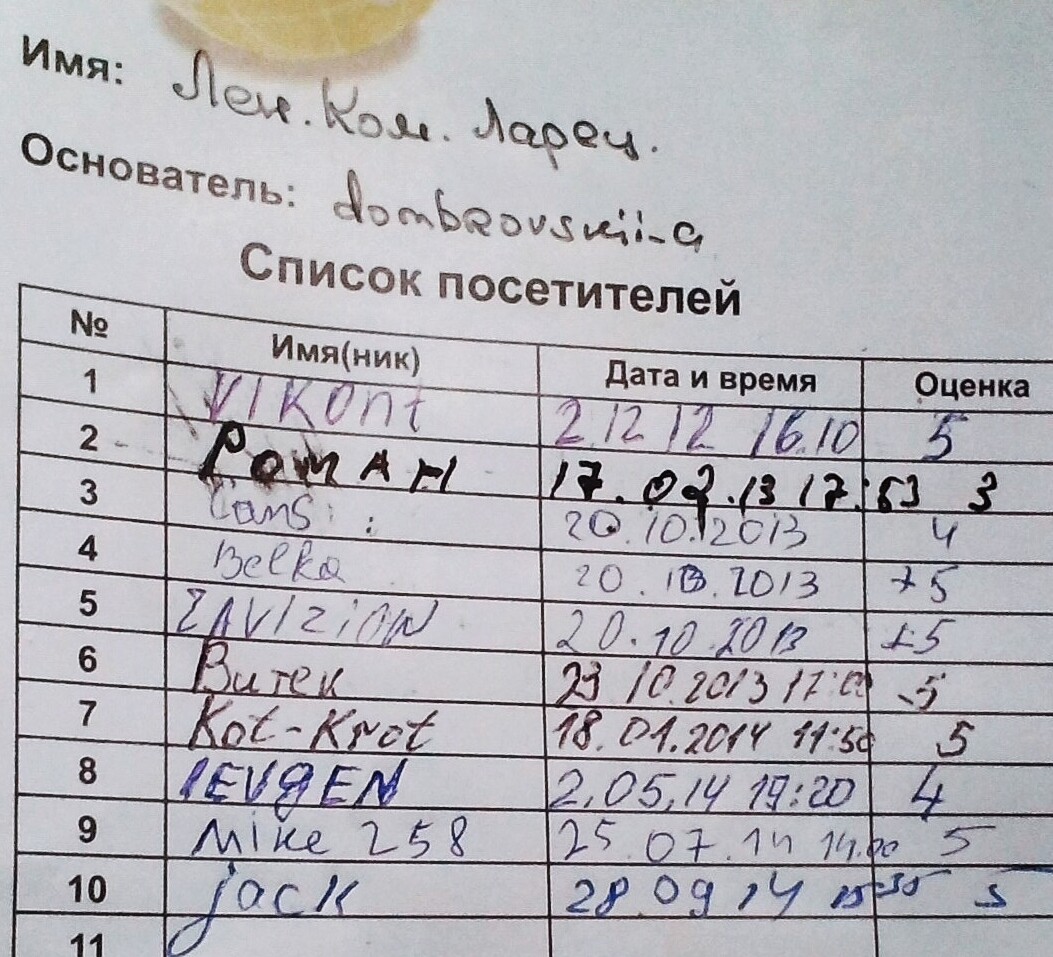 Имя: Лен. Ком. Ларец.
Основатель: dombrovskii-a
Список посетителей
№ Имя(ник) Дата и время Оценка
1 VIKOnt 2 12 12 16.10 5
2 РОМАН 17.02.13 17:53 3
3 20.10.2013 4
4 Belka 20.10.2013 +5
5 ZAVIZION 20.10 2013 +5
6 Витек 23 10.2013 17:00 -5
7 Kot-Krot 18.01.2014 11:50 5
8 IEVGEN 2,05,14 19:20 4
9 Mike 258 25.07.14 14.00 5
10 jack 28 09 14 15:35 5
11